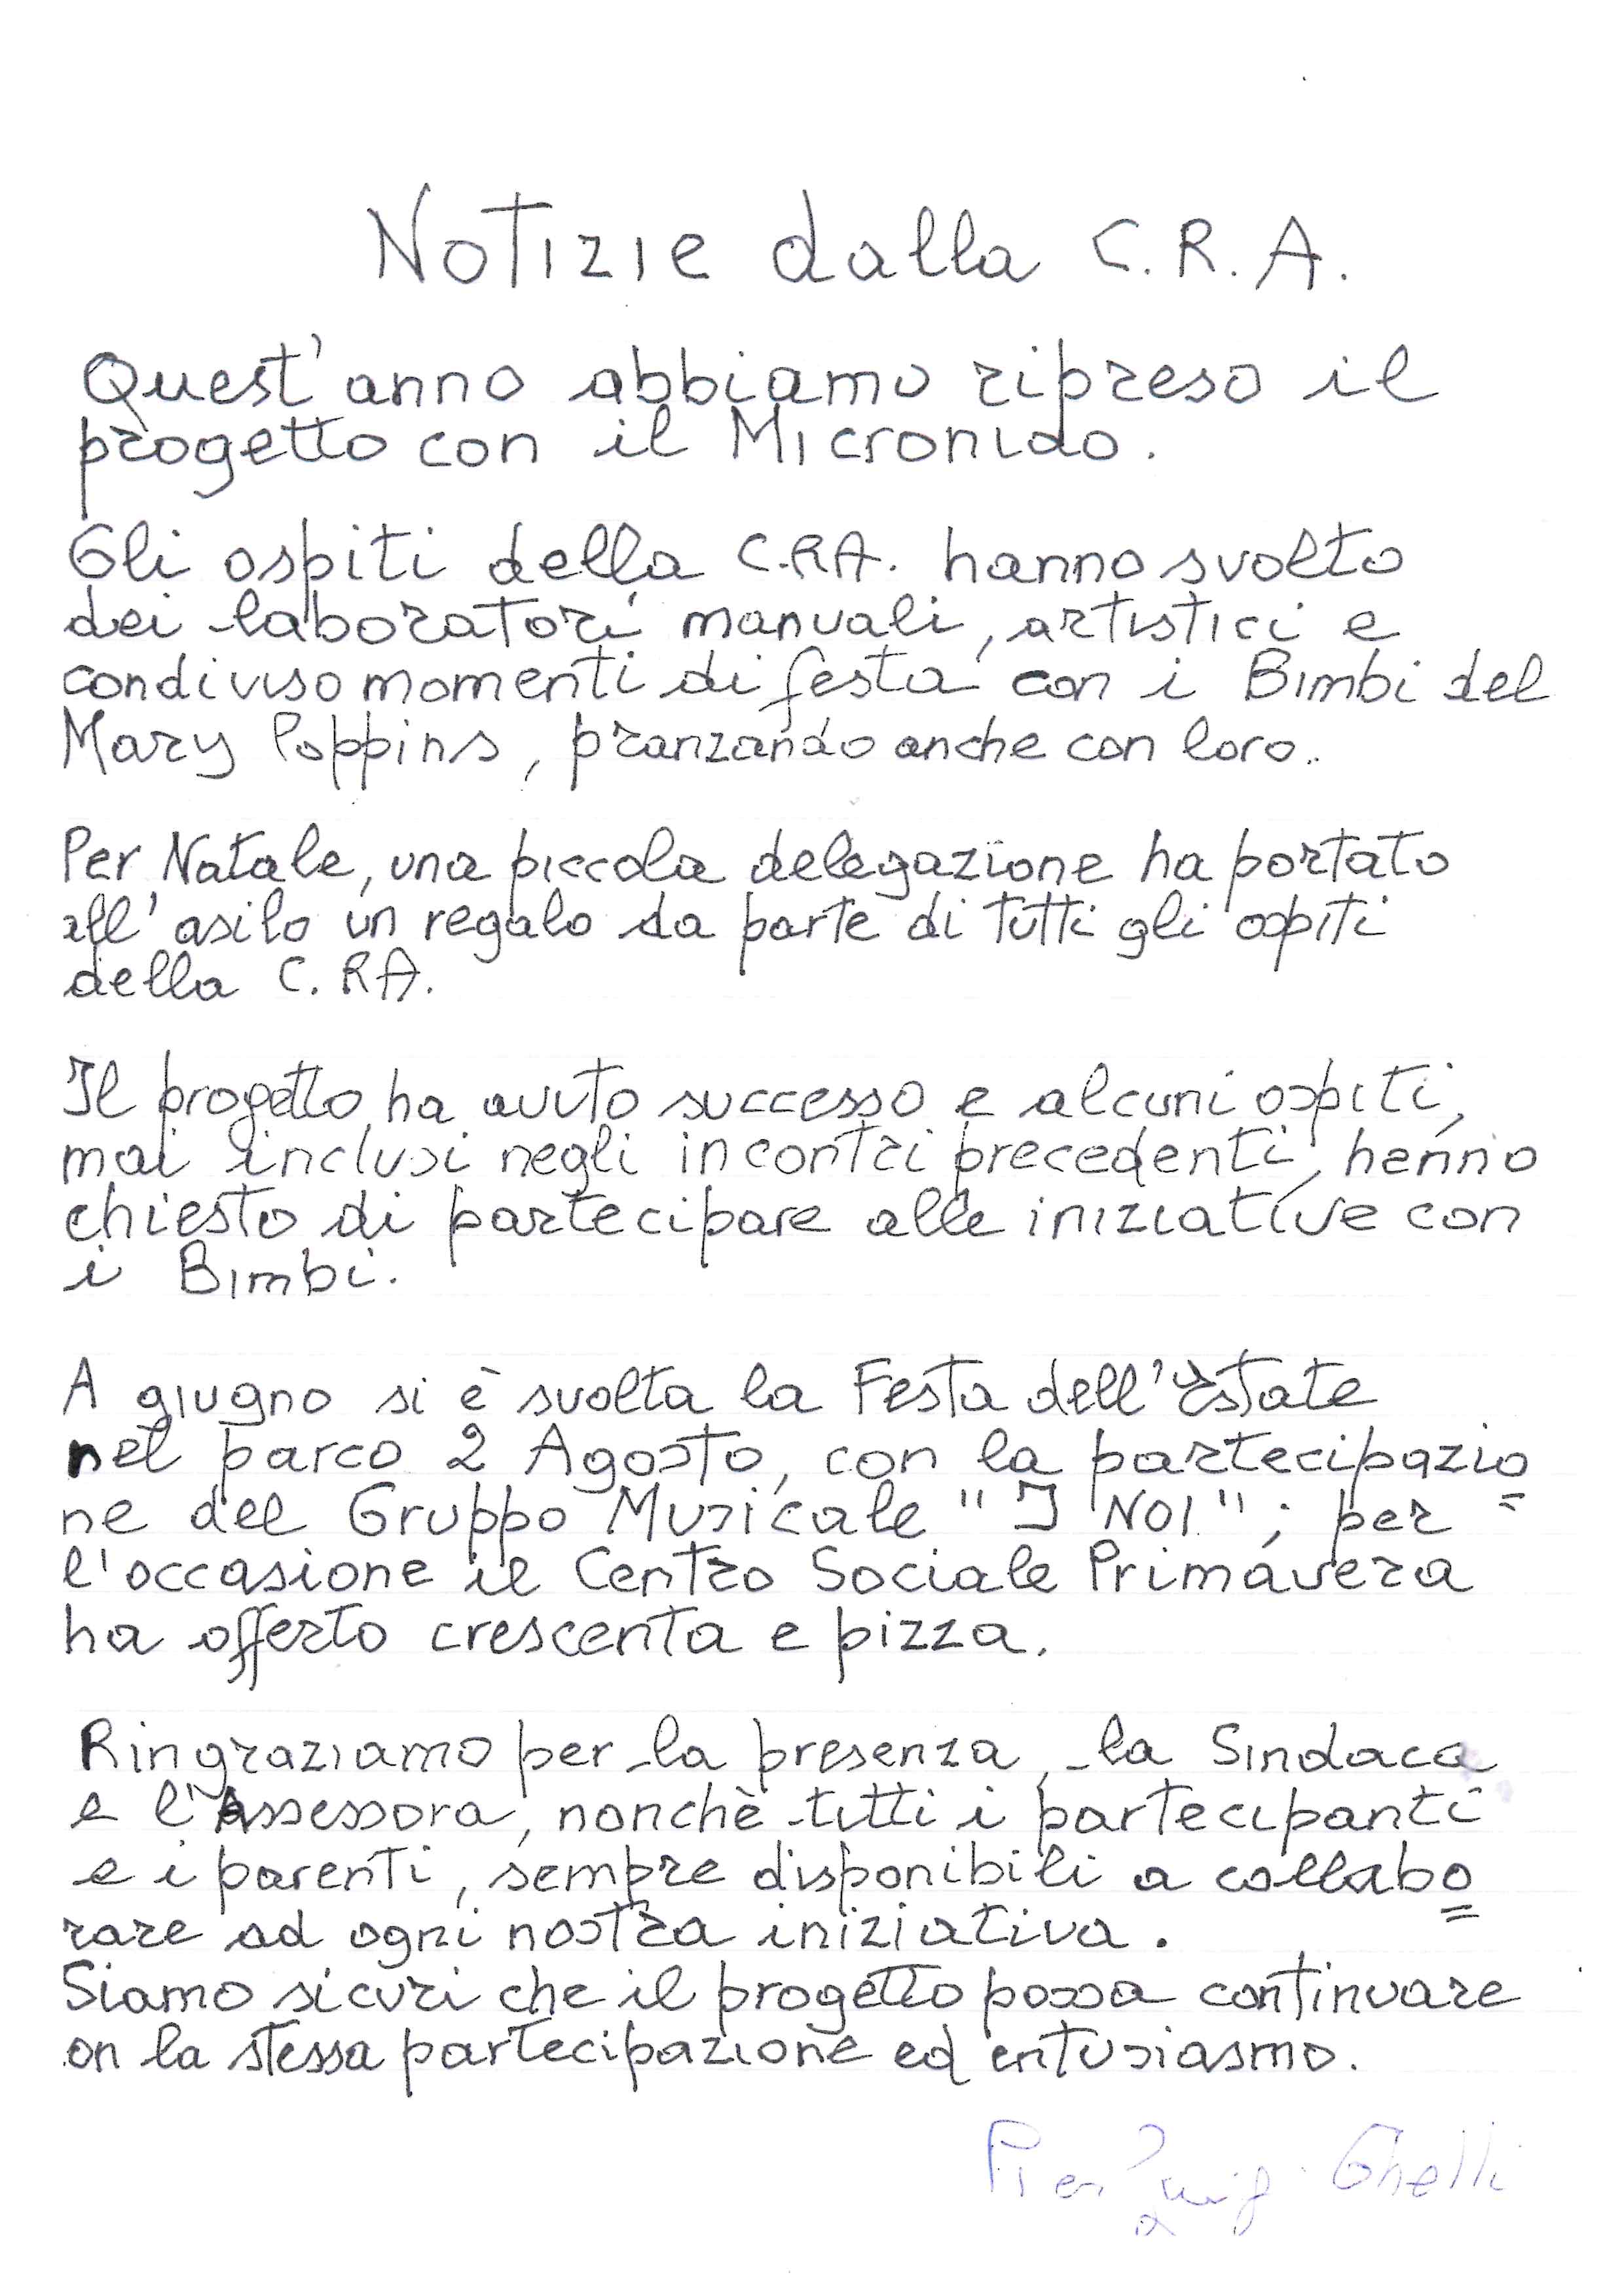 Notizie dalla C.R.A.
Quest'anno abbiamo ripreso il
progetto con il Micronido.
Gli ospiti della C.R.A. hanno svolto
dei laboratori manuali, artistici e
condiviso momenti di festa con i Bimbi del
Mary Poppins, pranzando anche con loro.
Per Natale, una piccola delegazione ha portato
all'asilo un regalo da parte di tutti gli ospiti
della C.R.A.
Il progetto ha avuto successo e alcuni ospiti,
mai inclusi negli incontri precedenti, hanno
chiesto di partecipare alle iniziative con
i Bimbi.
A giugno si è svolta la Festa dell'Estate
nel parco 2 Agosto, con la partecipazio=
ne del Gruppo Musicale "I NOI"; per
l'occasione il Centro Sociale Primavera
ha offerto crescenta e pizza.
Ringraziamo per la presenza, la Sindaca
e l'Assessora, nonchè tutti i partecipanti
e i parenti, sempre disponibili a collabo=
rare ad ogni nostra iniziativa.
Siamo sicuri che il progetto possa continuare
on la stessa partecipazione ed entusiasmo.
Pier Luigi Ghelli